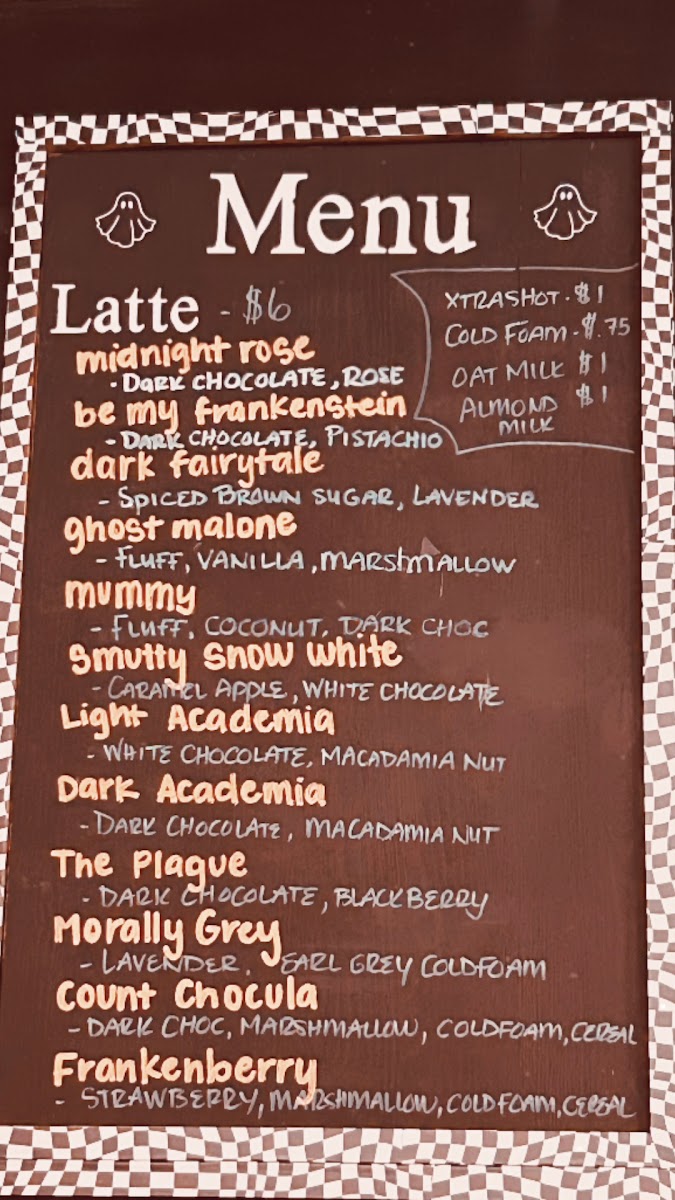 Menu
Latte - $6
XTRASHOT - $1
COLD FOAM - $.75
OAT MILK $1
ALMOND $1
MILK
midnight rose
- DARK CHOCOLATE, ROSE
be my frankenstein
- DARK CHOCOLATE, PISTACHIO
dark fairytale
- SPICED BROWN SUGAR, LAVENDER
ghost malone
- FLUFF, VANILLA, MARSHMALLOW
mummy
- FLUFF, COCONUT, DARK CHOC
Smutty Snow White
- CARAMEL APPLE, WHITE CHOCOLATE
Light Academia
- WHITE CHOCOLATE, MACADAMIA NUT
Dark Academia
- DARK CHOCOLATE, MACADAMIA NUT
The Plague
- DARK CHOCOLATE, BLACKBERRY
Morally Grey
- LAVENDER, EARL GREY COLDFOAM
Count Chocula
- DARK CHOC, MARSHMALLOW, COLDFOAM, CEREAL
Frankenberry
- STRAWBERRY, MARSHMALLOW, COLDFOAM, CEREAL